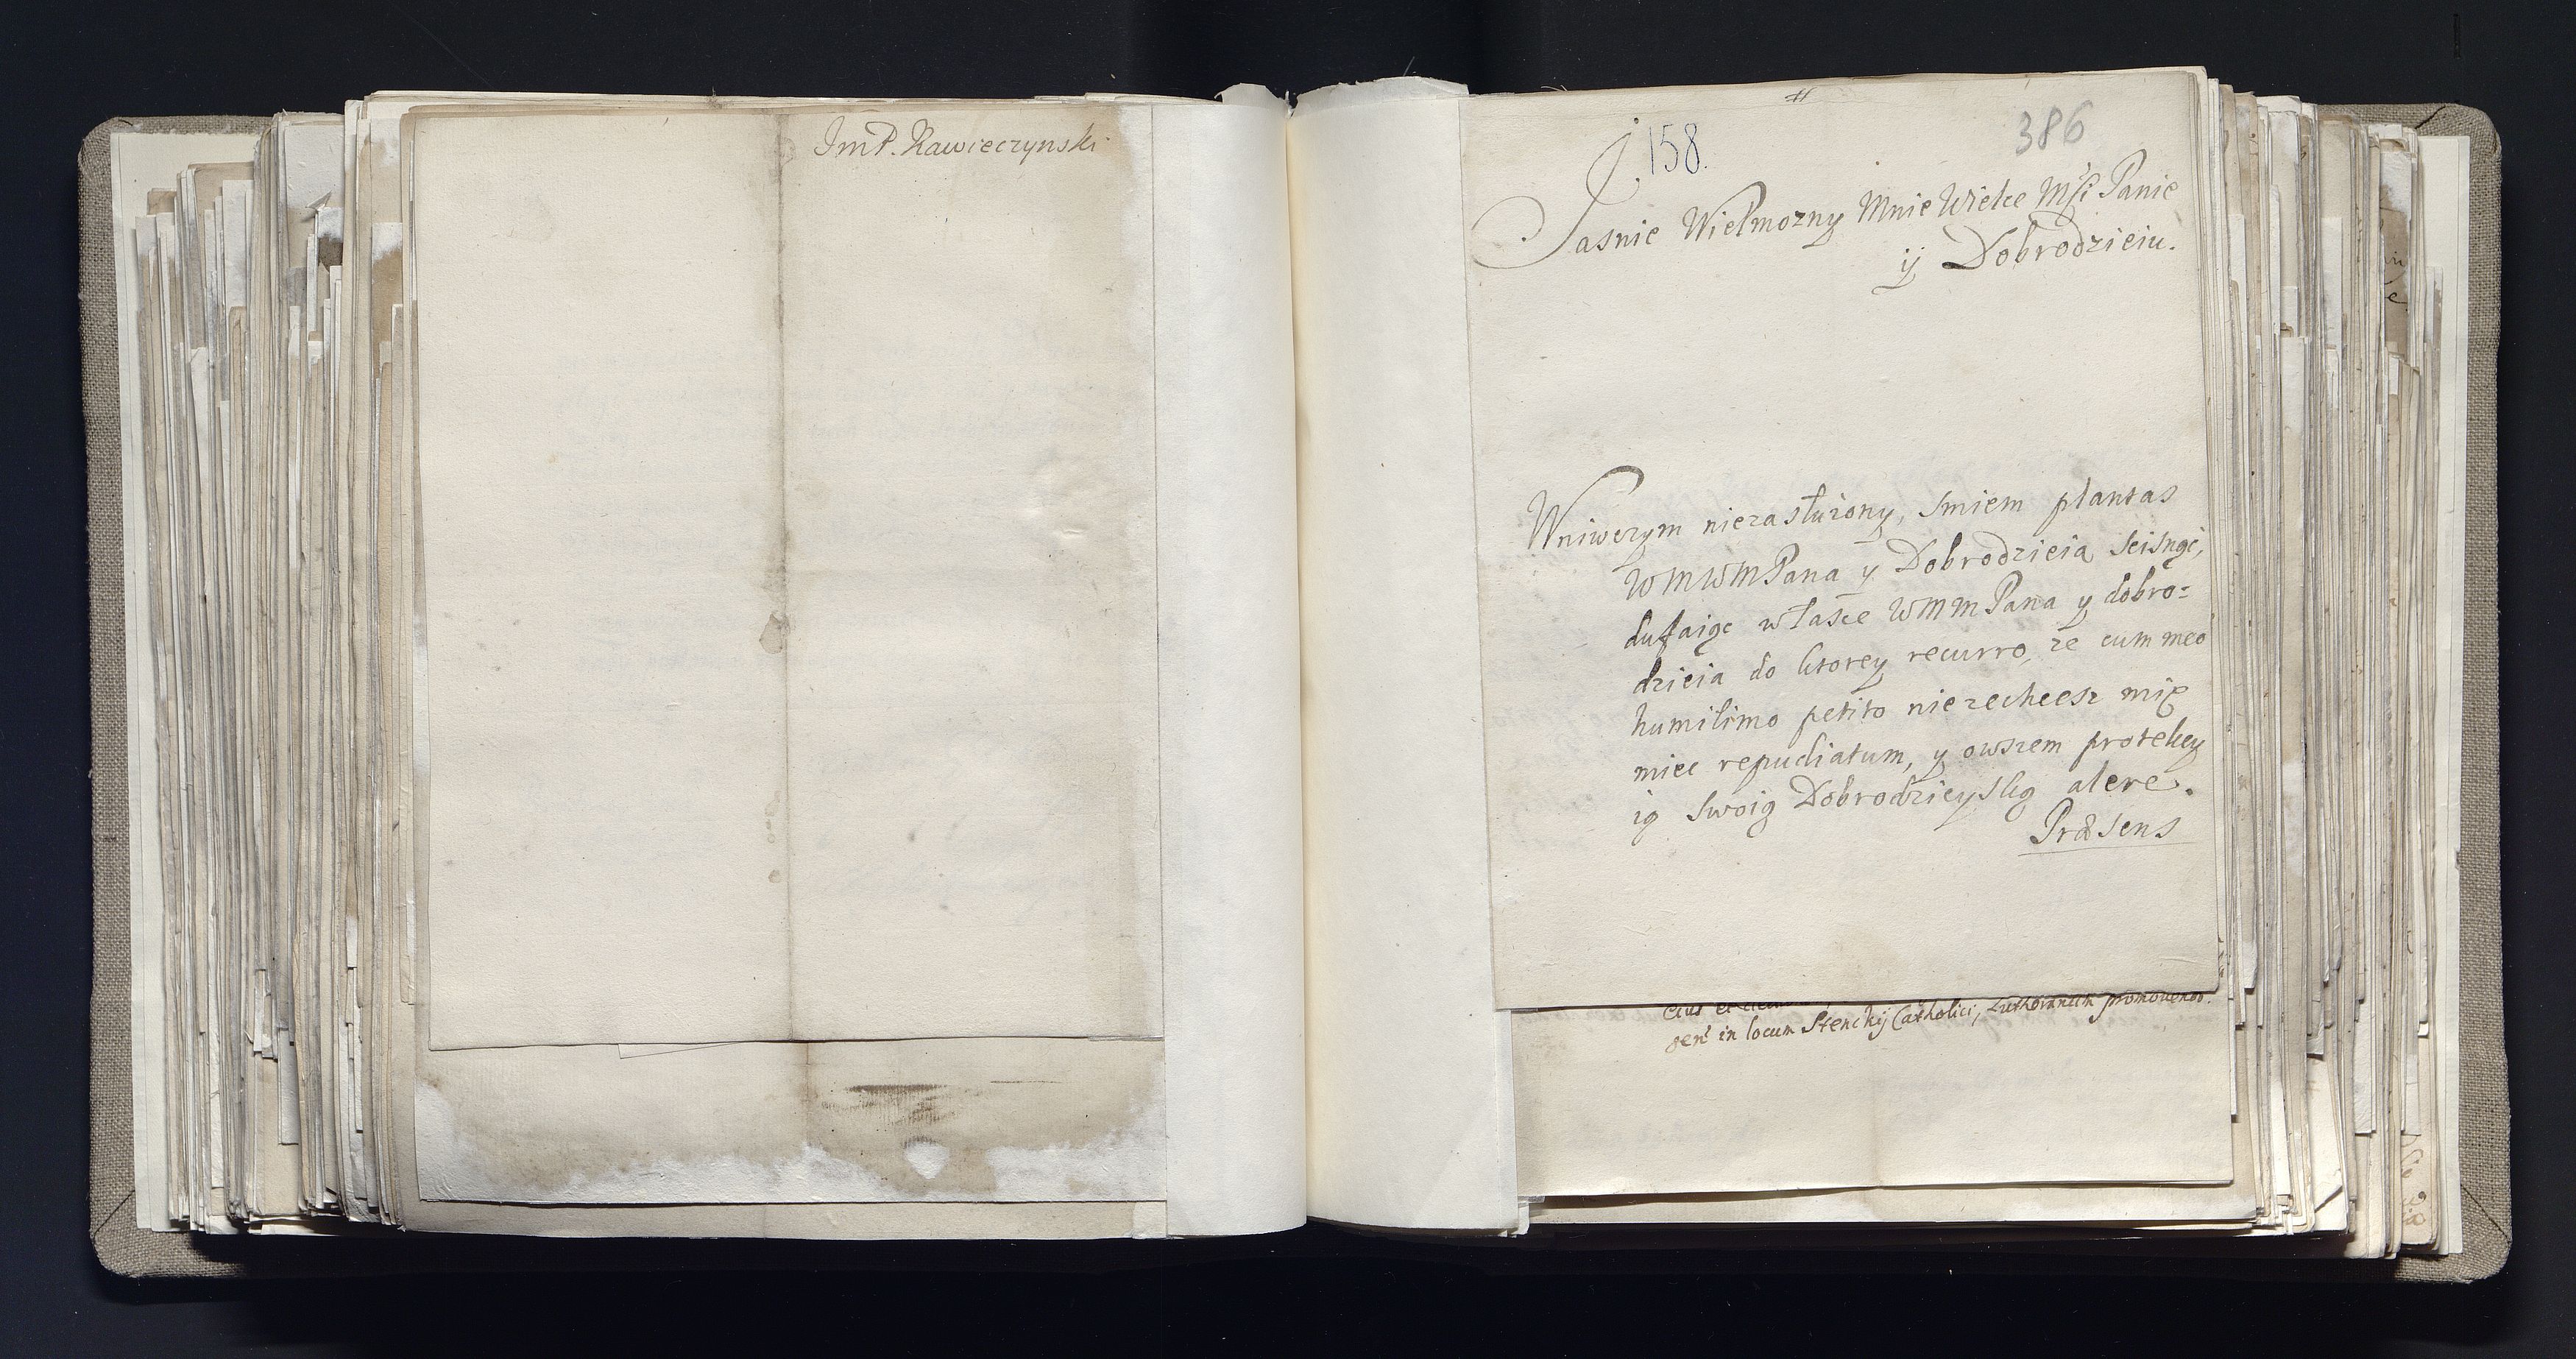 ImP. Kawieczynski
158.
386
Jasnie Wielmozny Mnie Wielce Mśći Panie
ij Dobrodzieiu.
Wniwczym niezasłużony, smiem plantas
WMWMPana y Dobrodzieia scisnąć,
dufaiąc własce WMMPana y dobro=
dzieia do ktorey recurro, że cum meo
humilimo petito niezechcesz mię
miec repudiatum, y owszem protekcy
ią swoią Dobrodzieyską alere.
Præsens
eius
gen̄s in locum Stenckij Catholici, Lutheranum promovendo.